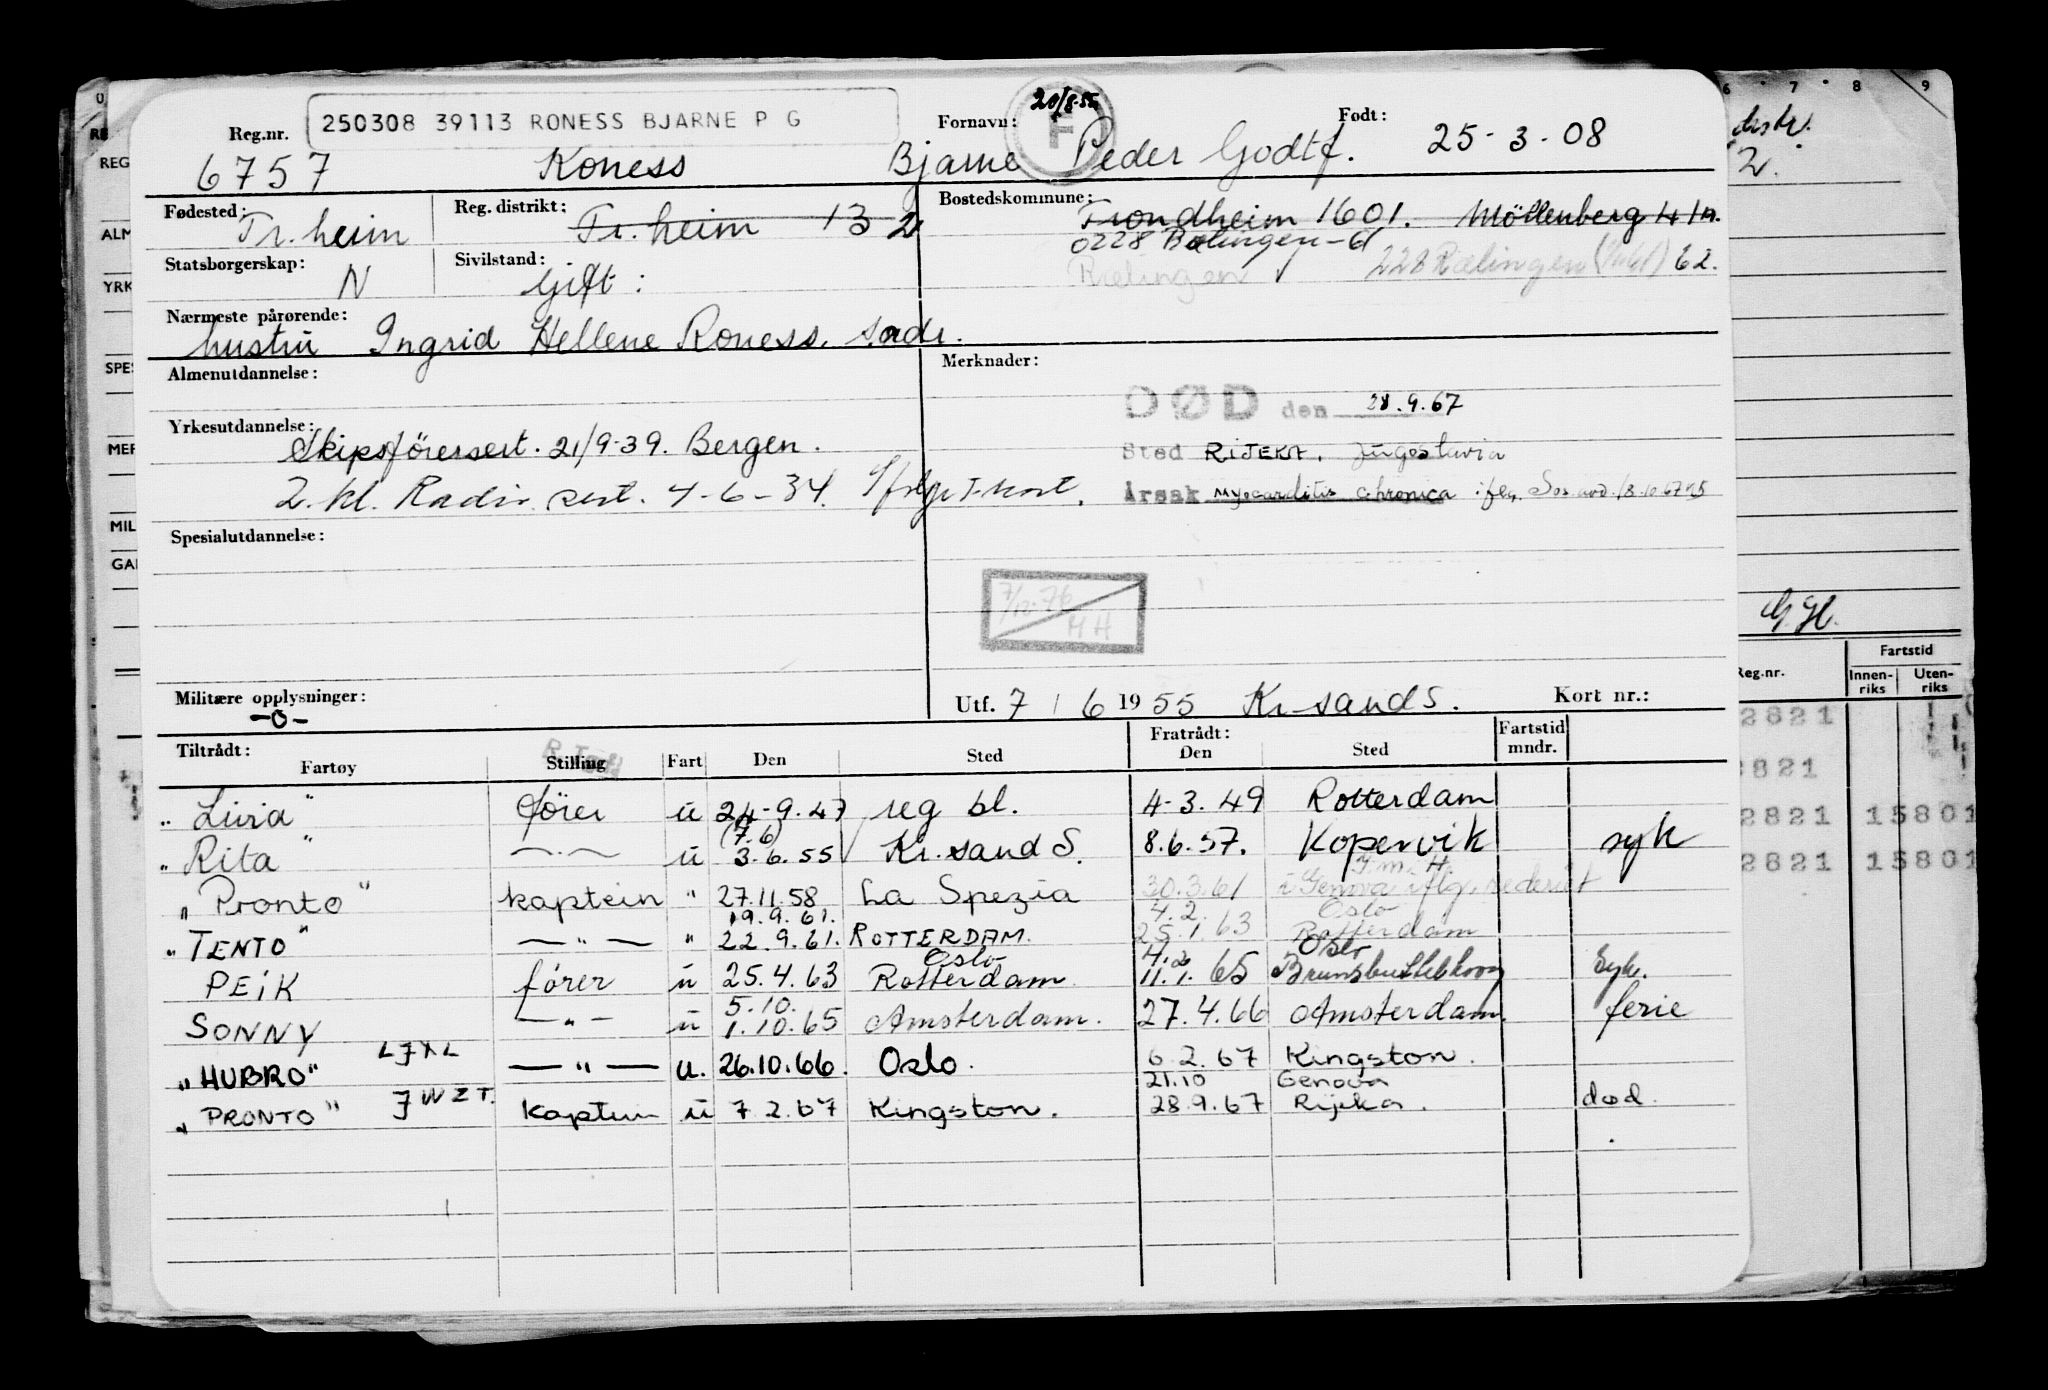 Reg.nr. 250308 39113 RONESS BJARNE P G Fornavn: 20/8-55 F Født:
6757 Roness Bjarne Peder Godtf. 25-3-08
Fødested: Reg. distrikt: Bostedskommune:
Tr.heim Tr.heim 13 2 Trondheim 1601. Möllenberg 41a.
0228 Rælingen-61
Statsborgerskap: Sivilstand:
N Gift: Rælingen 228 Rælingen 62.
Nærmeste pårørende:
hustru Ingrid Hellene Roness. s.adr.
Almenutdannelse: Merknader:
DØD den 28.9.67
Yrkesutdannelse:
Skipsförersert. 21/9-39. Bergen.
Sted RIJEKA, Jugoslavia
2. kl. Radio sert. 4-6-34. Ifølge T-kort.
Årsak Myocarditis chronica ifлg. Sos. avd. 18.10.67
Spesialutdannelse:
7/12-76
MH
Militære opplysninger:
-0-
Utf. 7 / 6 1955 Kr-sand S. Kort nr.:
Tiltrådt: Fratrådt: Fartstid
Fartøy Stilling Fart Den Sted Den Sted mndr.
"Livia" förer u 24-9.47 reg bl. 4-3.49 Rotterdam
(7.6)
"Rita" —.— u 3.6.55 Kr.sand S. 8.6.57. Kopervik syk
F.m.H.
"Pronto" kaptein " 27.11.58 La Spezia 30.3.61 i Genova iflg. rederiet
19.9.61. 4.2. Oslo
"TENTO" —"— " 22.9.61. ROTTERDAM. 25.1.63 Rotterdam
Oslo 4.2 Oslo
PEIK fører u 25.4.63 Rotterdam 11.1.65 Brunsbuttelkoog Syk.
5.10.
SONNY —"— u 1.10.65 Amsterdam. 27.4.66 Amsterdam. ferie
LJXL
"HUBRO" —"— u. 26.10.66. Oslo. 6.2.67 Kingston.
21.10 Genova
"PRONTO" JWZT. kaptein u 7.2.67 Kingston. 28.9.67 Rijeka. død.
0 6 7 8 9
REG
ALM
YRK
SPES
MER
MIL
GAR
2.
G.H.
Fartstid
Reg.nr. Innen-riks Uten-riks
2821
2821
2821 15801
2821 15801